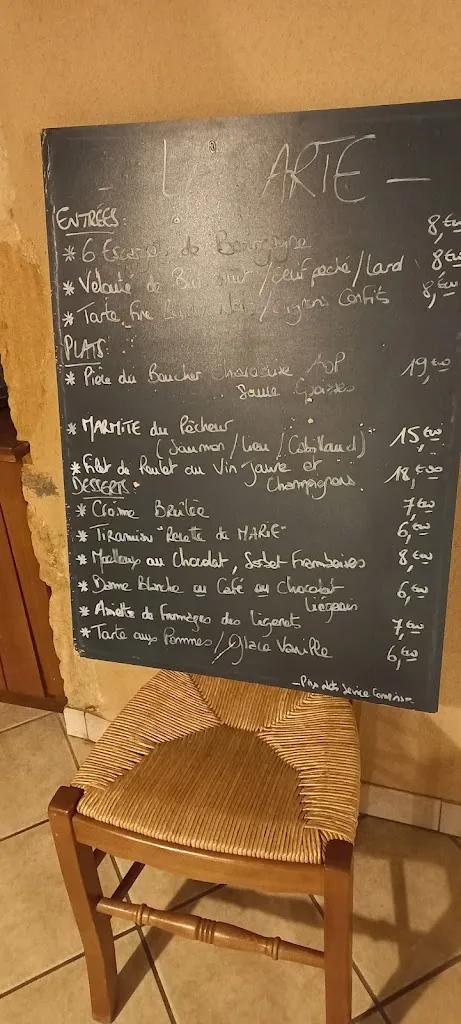 - LA CARTE -
ENTRÉES:
* 6 Escargots de Bourgogne 8,€00
* Velouté de / oeuf poché / Lard 8€00
* Tarte Fine / oignons Confits 8,€00
PLATS
* Pièce du Boucher Charolaise AOP 19,€00
Sauce Epoisses
* MARMITE du Pêcheur
(Saumon / Lieu / Cabillaud) 15,€00
* Filet de Poulet au Vin Jaune et 18,€00
Champignons
DESSERTS:
* Crème Brûlée 7,€00
* Tiramisu "Recette de MARIE" 6,€00
* Moelleux au Chocolat, Sorbet Framboises 8,€00
* Dame Blanche ou Café ou Chocolat 6,€00
Liégeois
* Assiette de Fromages des 7,€00
* Tarte aux Pommes / Glace Vanille 6,€00
- Prix Nets Service Compris -